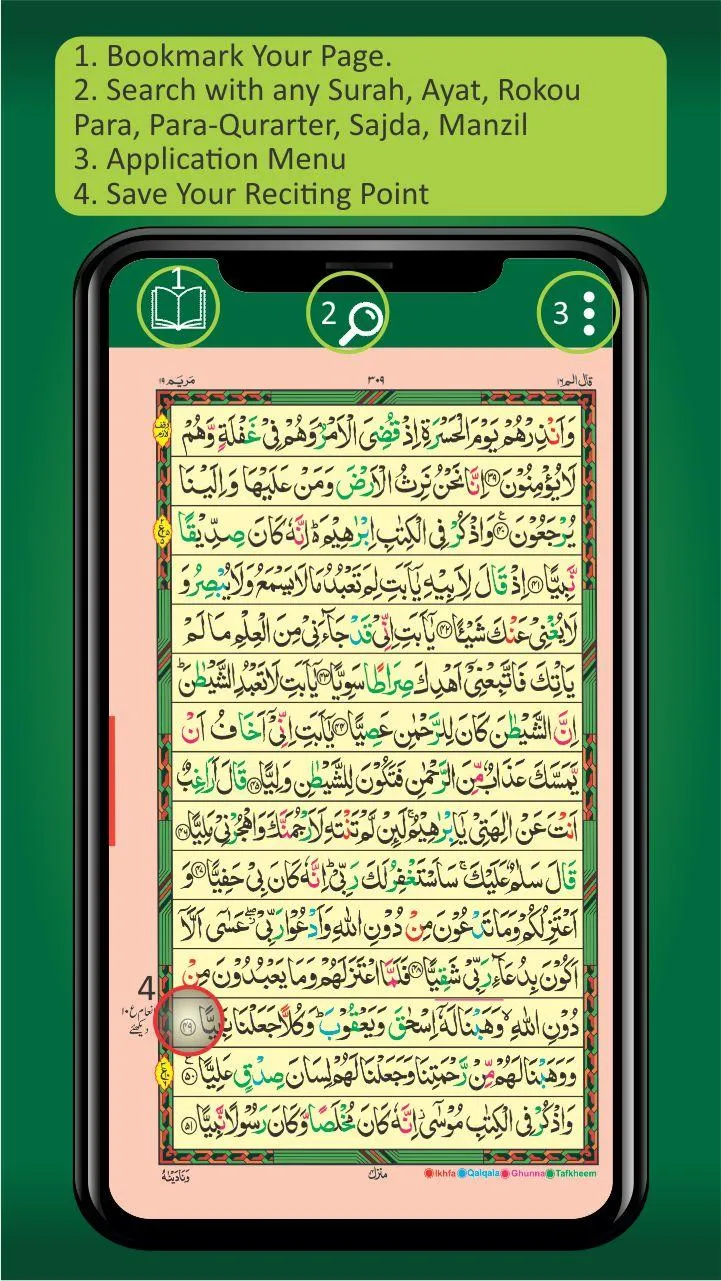 1. Bookmark Your Page.
2. Search with any Surah, Ayat, Rokou
Para, Para-Qurarter, Sajda, Manzil
3. Application Menu
4. Save Your Reciting Point
1
2
3
مَرْيَم ١٩
٣٠٩
قال الم ١٦
وَاَنْذِرْهُمْ يَوْمَ الْحَسْرَةِ اِذْ قُضِىَ الْاَمْرُ وَهُمْ فِىْ غَفْلَةٍ وَّهُمْ
لَا يُؤْمِنُوْنَ ﴿٣٩﴾ اِنَّا نَحْنُ نَرِثُ الْاَرْضَ وَمَنْ عَلَيْهَا وَاِلَيْنَا
يُرْجَعُوْنَ ﴿٤٠﴾ وَاذْكُرْ فِى الْكِتٰبِ اِبْرٰهِيْمَ ؕ اِنَّهٗ كَانَ صِدِّيْقًا
نَّبِيًّا ﴿٤١﴾ اِذْ قَالَ لِاَبِيْهِ يٰٓاَبَتِ لِمَ تَعْبُدُ مَا لَا يَسْمَعُ وَلَا يُبْصِرُ وَ
لَا يُغْنِىْ عَنْكَ شَيْئًا ﴿٤٢﴾ يٰٓاَبَتِ اِنِّىْ قَدْ جَآءَنِىْ مِنَ الْعِلْمِ مَا لَمْ
يَاْتِكَ فَاتَّبِعْنِىْٓ اَهْدِكَ صِرَاطًا سَوِيًّا ﴿٤٣﴾ يٰٓاَبَتِ لَا تَعْبُدِ الشَّيْطٰنَ ؕ
اِنَّ الشَّيْطٰنَ كَانَ لِلرَّحْمٰنِ عَصِيًّا ﴿٤٤﴾ يٰٓاَبَتِ اِنِّىْٓ اَخَافُ اَنْ
يَّمَسَّكَ عَذَابٌ مِّنَ الرَّحْمٰنِ فَتَكُوْنَ لِلشَّيْطٰنِ وَلِيًّا ﴿٤٥﴾ قَالَ اَرَاغِبٌ
اَنْتَ عَنْ اٰلِهَتِىْ يٰٓاِبْرٰهِيْمُ ۚ لَئِنْ لَّمْ تَنْتَهِ لَاَرْجُمَنَّكَ وَاهْجُرْنِىْ مَلِيًّا ﴿٤٦﴾
قَالَ سَلٰمٌ عَلَيْكَ ۚ سَاَسْتَغْفِرُ لَكَ رَبِّىْ ؕ اِنَّهٗ كَانَ بِىْ حَفِيًّا ﴿٤٧﴾ وَ
اَعْتَزِلُكُمْ وَمَا تَدْعُوْنَ مِنْ دُوْنِ اللّٰهِ وَاَدْعُوْا رَبِّىْ ۖ عَسٰٓى اَلَّآ
اَكُوْنَ بِدُعَآءِ رَبِّىْ شَقِيًّا ﴿٤٨﴾ فَلَمَّا اعْتَزَلَهُمْ وَمَا يَعْبُدُوْنَ مِنْ
دُوْنِ اللّٰهِ ۙ وَهَبْنَا لَهٗٓ اِسْحٰقَ وَيَعْقُوْبَ ؕ وَكُلًّا جَعَلْنَا نَبِيًّا ﴿٤٩﴾
4
وَوَهَبْنَا لَهُمْ مِّنْ رَّحْمَتِنَا وَجَعَلْنَا لَهُمْ لِسَانَ صِدْقٍ عَلِيًّا ﴿٥٠﴾
وَاذْكُرْ فِى الْكِتٰبِ مُوْسٰٓى ؗ اِنَّهٗ كَانَ مُخْلَصًا وَّكَانَ رَسُوْلًا نَّبِيًّا ﴿٥١﴾
وَنَادَيْنٰهُ
منزل
Ikhfa Qalqala Ghunna Tafkheem